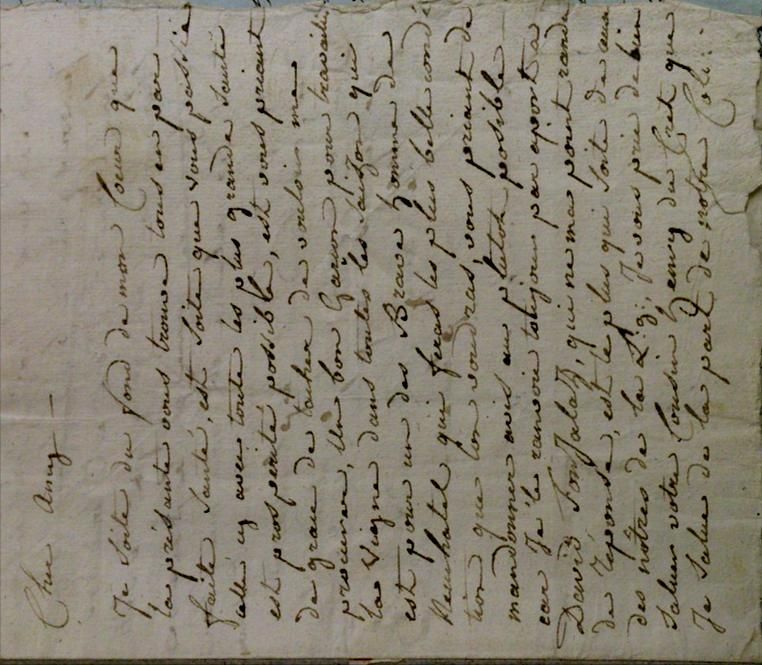 Cher Amy —
Je Soite du fond de mon Coeur que
la présante vous trouve tous en par
faite Santé, est Soite que vous passié
avec toute les plus grande Santé
est prospérité possible, est vous priant
de grace de tacher de vouloir me
procurer, Un bon Garson pour travailié
la Vigne dans toutes les Saizon qui
est pour un des Brave homme de
Neuchatel qui feras les plus belle condi
tion que lon voudras, vous priant de
mandonner avis au plutot possible
car Je le ranvoie toujour par aport a
David qui ne ma point randu
de Reponse, est le plus qui Soite de
des nôtres de la Je vous prie de bien
Saluer votre Cousin henry du Cret que
Je Salue de la part de notre